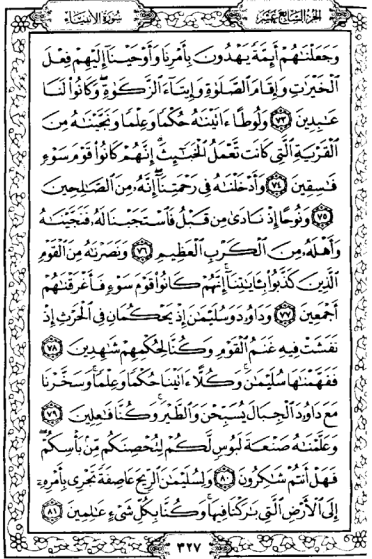 الجزء السابع عشر
سورة الأنبياء
وَجَعَلْنَٰهُمْ أَئِمَّةً يَهْدُونَ بِأَمْرِنَا وَأَوْحَيْنَآ إِلَيْهِمْ فِعْلَ
ٱلْخَيْرَٰتِ وَإِقَامَ ٱلصَّلَوٰةِ وَإِيتَآءَ ٱلزَّكَوٰةِ ۖ وَكَانُوا۟ لَنَا
عَٰبِدِينَ ۝٧٣ وَلُوطًا ءَاتَيْنَٰهُ حُكْمًا وَعِلْمًا وَنَجَّيْنَٰهُ مِنَ
ٱلْقَرْيَةِ ٱلَّتِى كَانَت تَّعْمَلُ ٱلْخَبَٰٓئِثَ ۗ إِنَّهُمْ كَانُوا۟ قَوْمَ سَوْءٍ
فَٰسِقِينَ ۝٧٤ وَأَدْخَلْنَٰهُ فِى رَحْمَتِنَآ ۖ إِنَّهُۥ مِنَ ٱلصَّٰلِحِينَ
۝٧٥ وَنُوحًا إِذْ نَادَىٰ مِن قَبْلُ فَٱسْتَجَبْنَا لَهُۥ فَنَجَّيْنَٰهُ
وَأَهْلَهُۥ مِنَ ٱلْكَرْبِ ٱلْعَظِيمِ ۝٧٦ وَنَصَرْنَٰهُ مِنَ ٱلْقَوْمِ
ٱلَّذِينَ كَذَّبُوا۟ بِـَٔايَٰتِنَآ ۚ إِنَّهُمْ كَانُوا۟ قَوْمَ سَوْءٍ فَأَغْرَقْنَٰهُمْ
أَجْمَعِينَ ۝٧٧ وَدَاوُۥدَ وَسُلَيْمَٰنَ إِذْ يَحْكُمَانِ فِى ٱلْحَرْثِ إِذْ
نَفَشَتْ فِيهِ غَنَمُ ٱلْقَوْمِ وَكُنَّا لِحُكْمِهِمْ شَٰهِدِينَ ۝٧٨
فَفَهَّمْنَٰهَا سُلَيْمَٰنَ ۚ وَكُلًّا ءَاتَيْنَا حُكْمًا وَعِلْمًا ۚ وَسَخَّرْنَا
مَعَ دَاوُۥدَ ٱلْجِبَالَ يُسَبِّحْنَ وَٱلطَّيْرَ ۚ وَكُنَّا فَٰعِلِينَ ۝٧٩
وَعَلَّمْنَٰهُ صَنْعَةَ لَبُوسٍ لَّكُمْ لِتُحْصِنَكُم مِّنۢ بَأْسِكُمْ ۖ
فَهَلْ أَنتُمْ شَٰكِرُونَ ۝٨٠ وَلِسُلَيْمَٰنَ ٱلرِّيحَ عَاصِفَةً تَجْرِى بِأَمْرِهِۦٓ
إِلَى ٱلْأَرْضِ ٱلَّتِى بَٰرَكْنَا فِيهَا ۚ وَكُنَّا بِكُلِّ شَىْءٍ عَٰلِمِينَ ۝٨١
٣٢٧